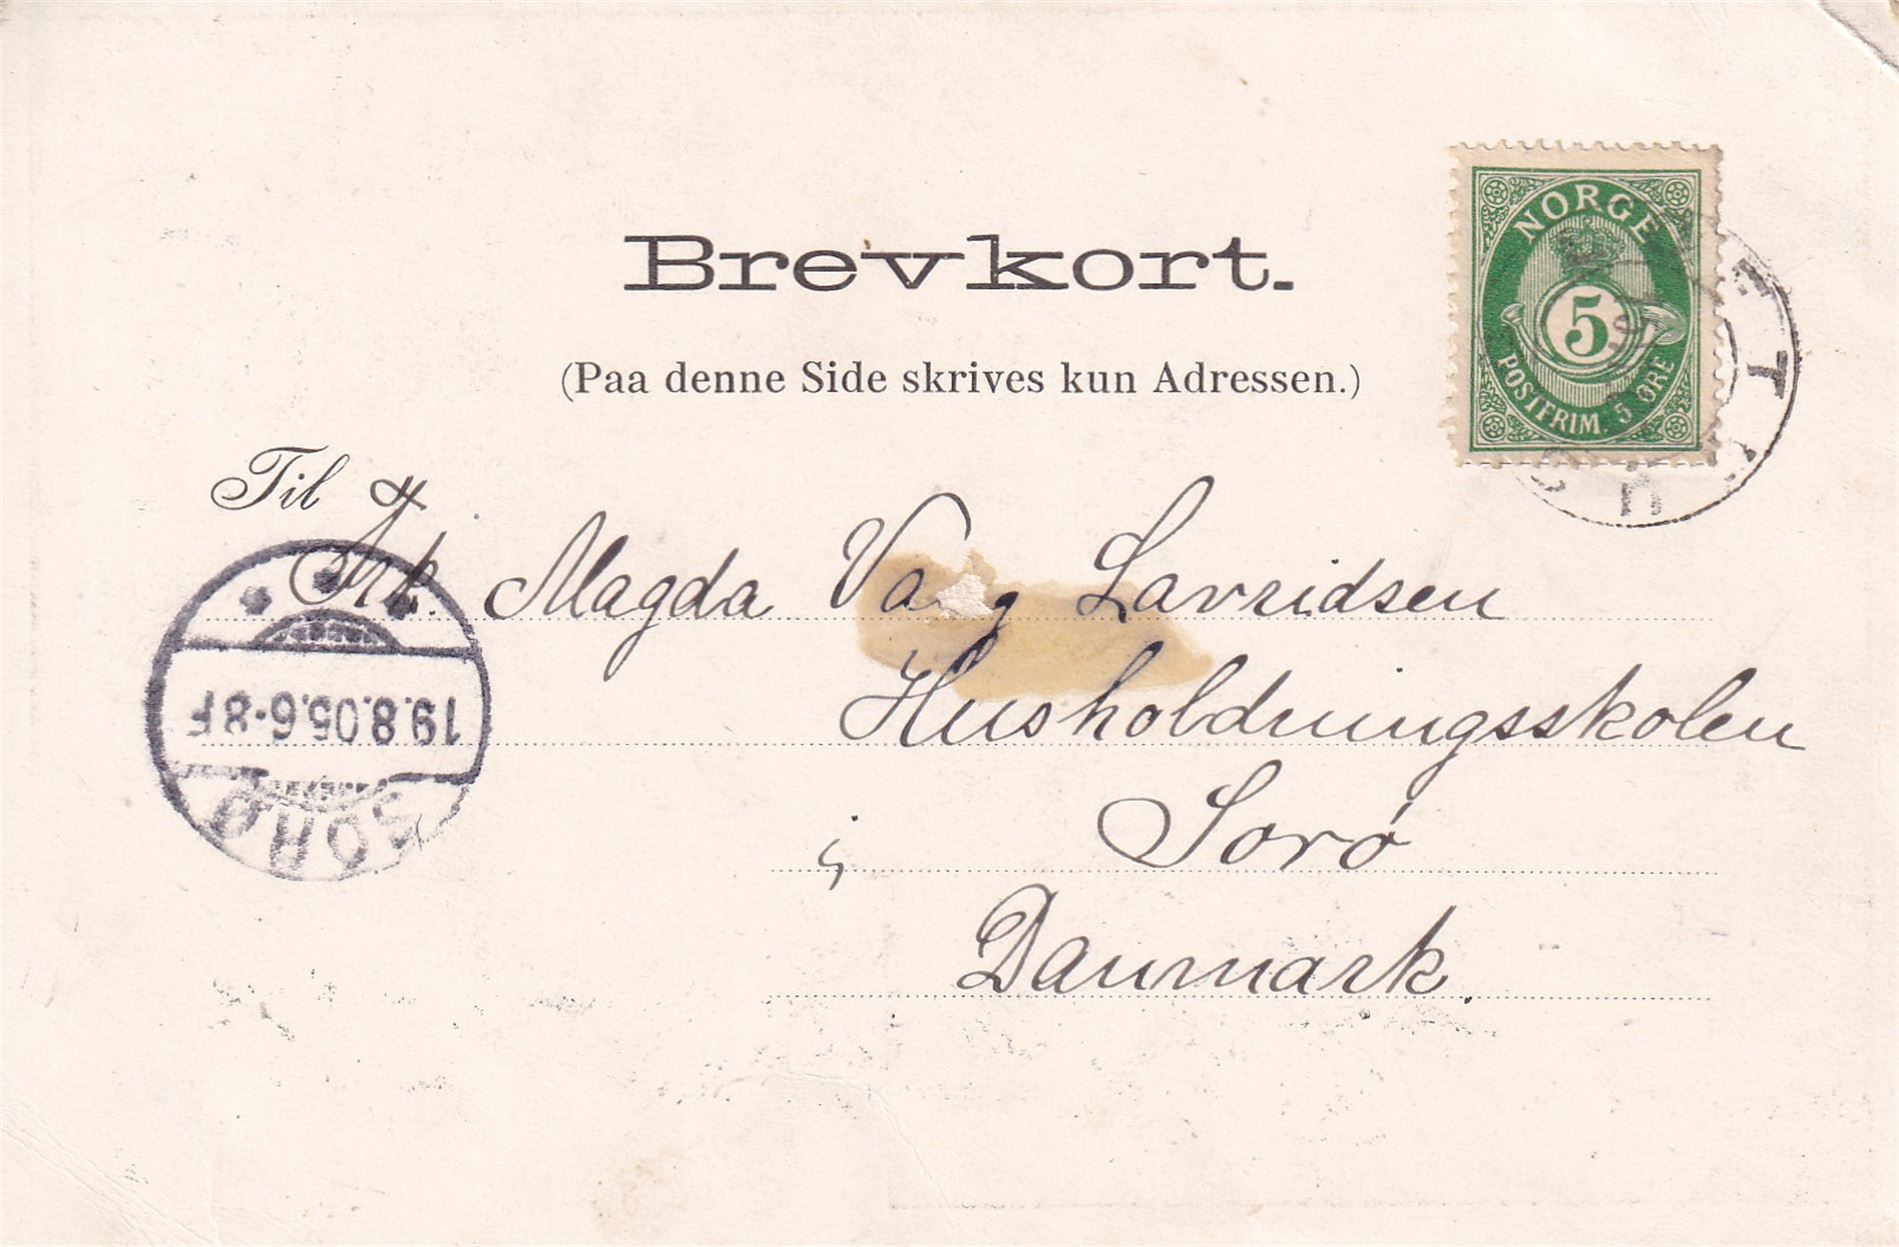 Brevkort.
(Paa denne Side skrives kun Adressen.)
NORGE
5
POSTFRIM. 5 ØRE
Til
Frk. Magda Lavridsen
Husholdningsskolen
i Sorø
Danmark.
19.8.05.6-8F
SORØ